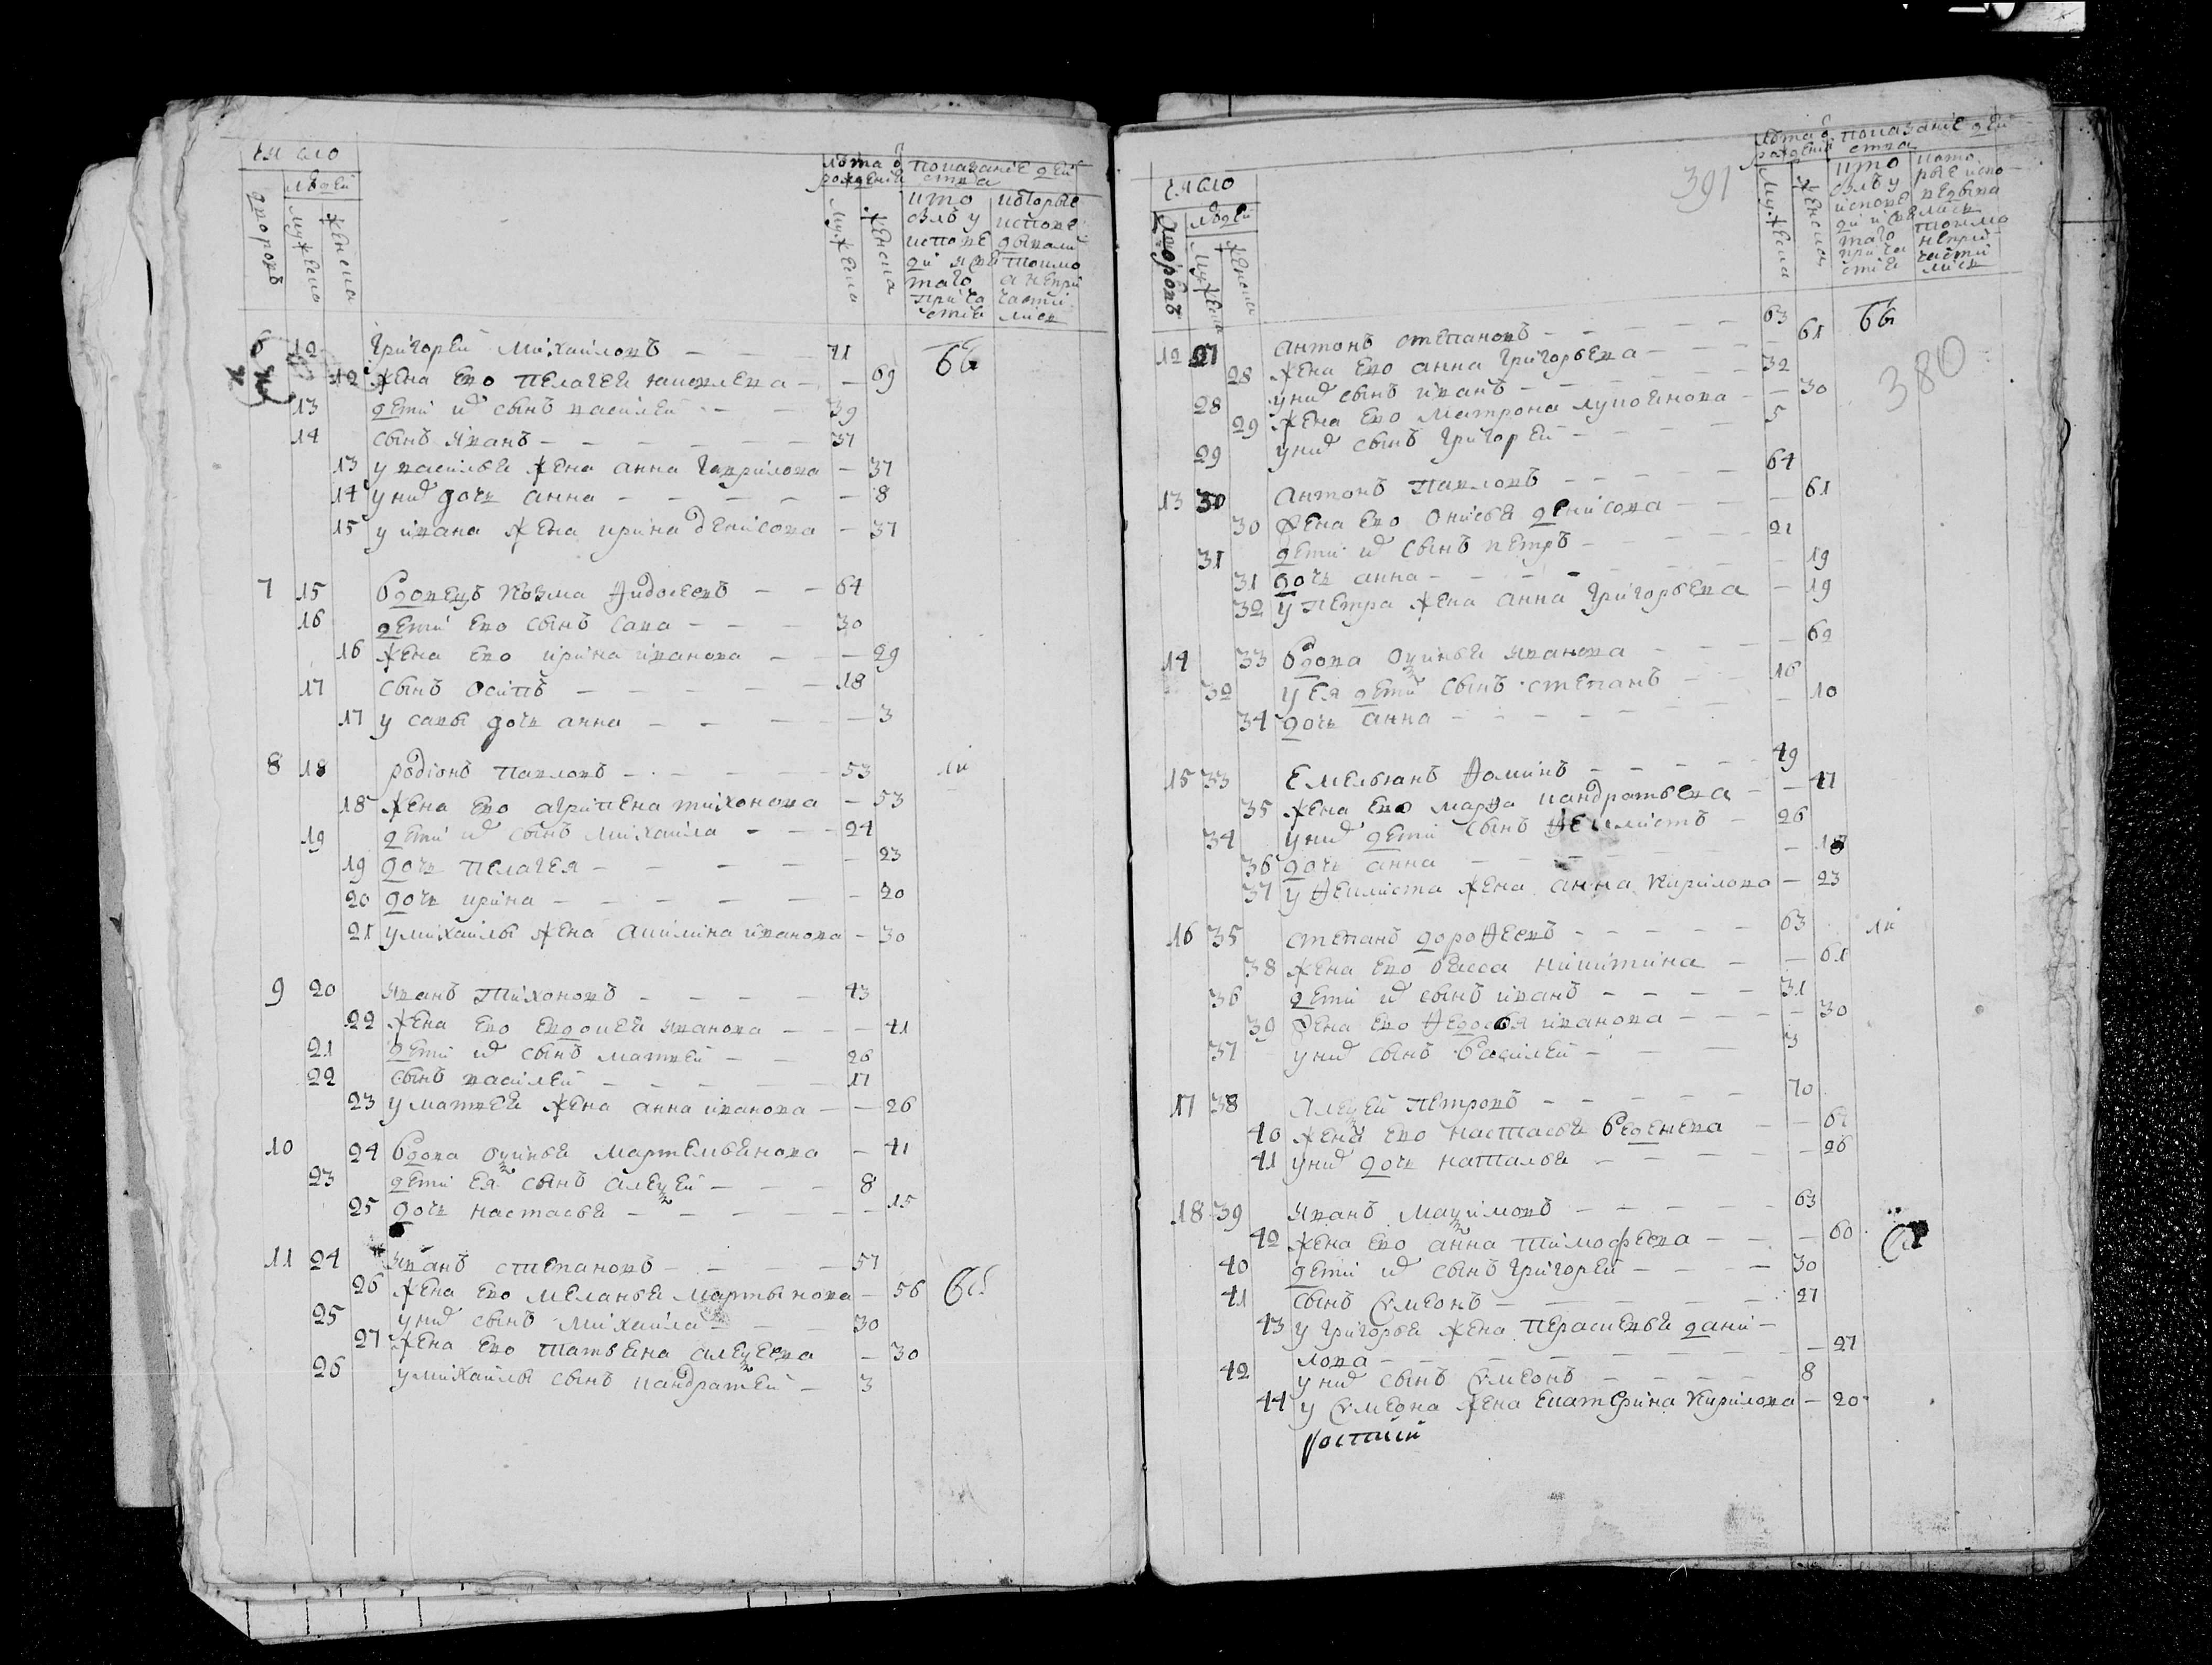 число
людей
дворовъ
мужеска
женска
лѣта ѿ рожденія
показаніе действа
мужеска
женска
кто былъ у исповеди и святаго причастія
которые исповедывались токмо а непричастились
6 12 Григорей Михайловъ — — 71
12 жена ево пелагея яковлева — — 69
13 дети их сынъ василей — — 39
14 сынъ иванъ — — — — — — 37
13 у василья жена анна гаврилова — 37
14 у них дочь анна — — — — — 8
15 у ивана жена ирина денисова — 37
7 15 вдовецъ козма Ѳидосеевъ — — 64
16 дети ево сынъ сава — — — 30
16 жена ево ирина иванова — — — 29
17 сынъ осипъ — — — — — — 18
17 у савы дочь анна — — — — — 3
8 18 родіонъ павловъ — — — — — 53
18 жена ево агрипена тихонова — 53
19 дети их сынъ михаила — — — 24
19 дочь пелагея — — — — — — 23
20 дочь ирина — — — — — — — 20
21 у михайлы жена акилина иванова — 30
9 20 иванъ тихоновъ — — — — — 43
22 жена ево евдокея иванова — — — 41
21 дети их сынъ матвей — — 26
22 сынъ василей — — — — — — 17
23 у матвея жена анна иванова — — 26
10 24 вдова оѯинья мартемьянова — 41
23 дети ея сынъ алеѯей — — — 8
25 дочь настасья — — — — — — 15
11 24 иванъ степановъ — — — — — 57
26 жена ево меланья мартынова — 56
25 у них сынъ михаила — — — 30
27 жена ево татьяна алеѯеева — 30
26 у михайлы сынъ кандратей — 3
391
число
людей
дворовъ
мужеска
женска
лѣта ѿ рожденія
показаніе действа
мужеска
женска
кто былъ у исповеди и святаго причастія
которые исповедывались токмо непричастились
380
12 27 антонъ степановъ — — — — — 63
28 жена ево анна григорьева — — — 61
28 у них сынъ иванъ — — — — — 32
29 жена ево матрона лукоянова — — 30
29 у них сынъ григорей — — — — 5
13 30 антонъ павловъ — — — — — 64
30 жена ево онисья денисова — — — 61
31 дети их сынъ петръ — — — — — 21
31 дочь анна — — — — — — — 19
32 у петра жена анна григорьева — 19
14 33 вдова оѯинья иванова — — — — 62
32 у ея дети сынъ степанъ — — 16
34 дочь анна — — — — — — — 10
15 33 емельянъ Ѳоминъ — — — — — 49
35 жена ево марѳа кандратьева — — 47
34 у них дети сынъ Ѳеклистъ — 26
36 дочь анна — — — — — — — 18
37 у Ѳеклиста жена анна кирилова — 23
16 35 степанъ дороѲеевъ — — — — — 63
38 жена ево васса никитина — — 61
36 дети их сынъ иванъ — — — — 31
39 жена ево Ѳедосья иванова — — — — 30
37 у них сынъ василей — — — 3
17 38 алеѯей петровъ — — — — — 70
40 жена ево настасья веденева — —
41 у них дочь наталья — — — — — 26
18 39 иванъ маѯимовъ — — — — — 63
42 жена ево анна тимофеева — — — 60
40 дети их сынъ григорей — — — — 30
41 сынъ сѵмеонъ — — — — — — 27
43 у григорья жена парасковья дани-
лова — — — — — — — — — 27
42 у них сынъ сѵмеонъ — — — — 8
44 у сѵмеона жена екатерина кирилова — 20